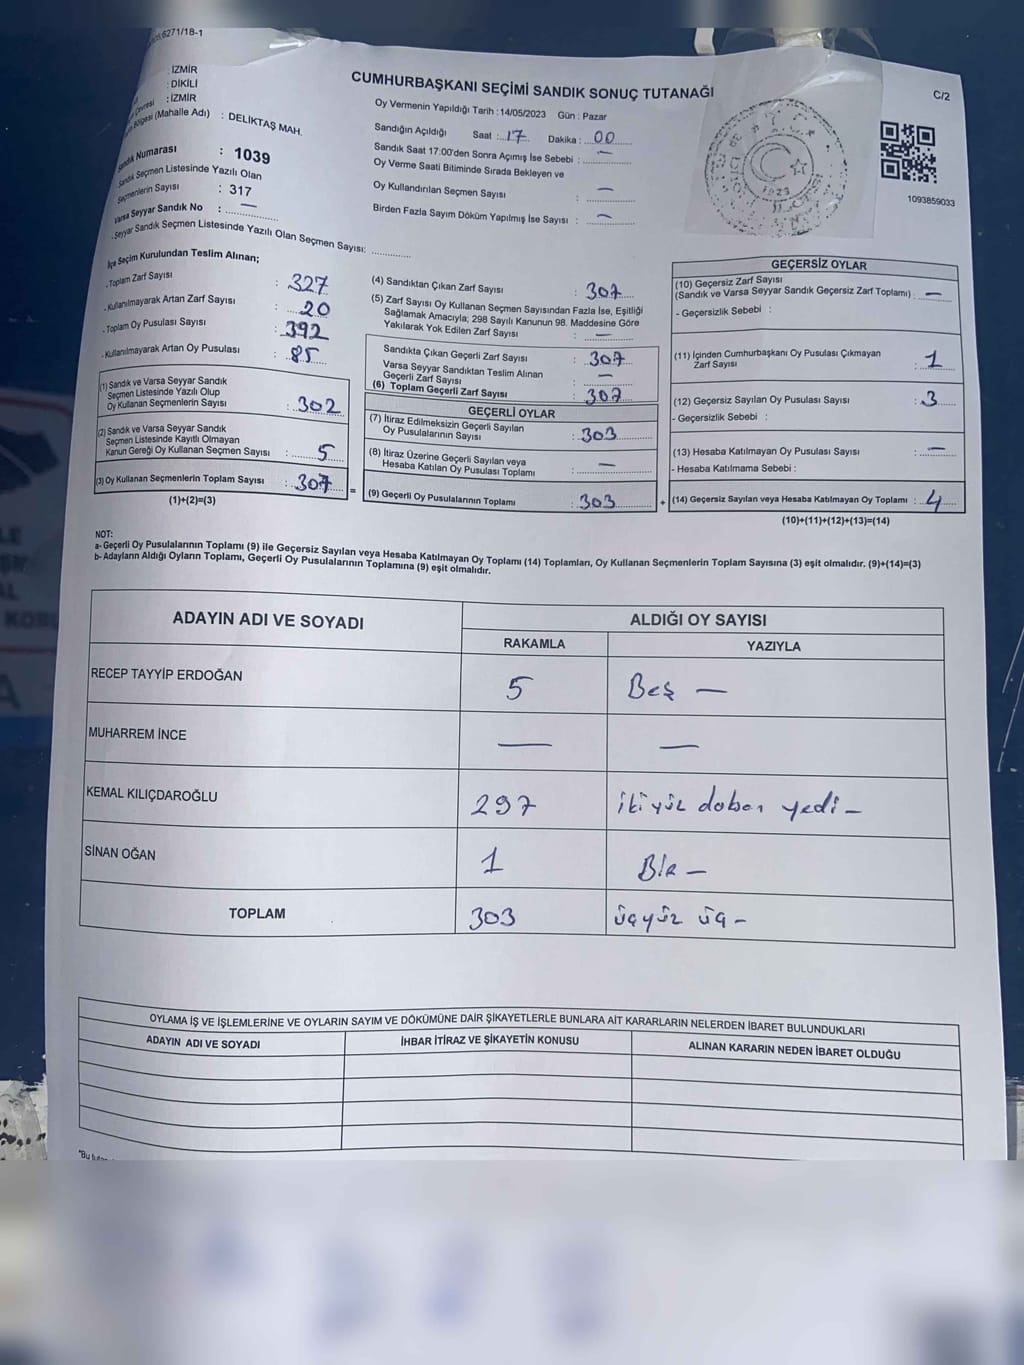 6271/18-1
: İZMİR
: DİKİLİ
Çevresi : İZMİR
Bölgesi (Mahalle Adı) : DELİKTAŞ MAH.
Sandık Numarası : 1039
Sandık Seçmen Listesinde Yazılı Olan
Seçmenlerin Sayısı : 317
Varsa Seyyar Sandık No : —
Seyyar Sandık Seçmen Listesinde Yazılı Olan Seçmen Sayısı:
CUMHURBAŞKANI SEÇİMİ SANDIK SONUÇ TUTANAĞI
Oy Vermenin Yapıldığı Tarih : 14/05/2023 Gün : Pazar
Sandığın Açıldığı Saat : 17 Dakika : 00
Sandık Saat 17:00'den Sonra Açılmış İse Sebebi : —
Oy Verme Saati Bitiminde Sırada Bekleyen ve
Oy Kullandırılan Seçmen Sayısı : —
Birden Fazla Sayım Döküm Yapılmış İse Sayısı : —
C/2
1093859033
1923
İlçe Seçim Kurulundan Teslim Alınan;
- Toplam Zarf Sayısı : 327
- Kullanılmayarak Artan Zarf Sayısı : 20
- Toplam Oy Pusulası Sayısı : 392
- Kullanılmayarak Artan Oy Pusulası : 85
(1) Sandık ve Varsa Seyyar Sandık
Seçmen Listesinde Yazılı Olup
Oy Kullanan Seçmenlerin Sayısı : 302
(2) Sandık ve Varsa Seyyar Sandık
Seçmen Listesinde Kayıtlı Olmayan
Kanun Gereği Oy Kullanan Seçmen Sayısı : 5
(3) Oy Kullanan Seçmenlerin Toplam Sayısı : 307
(1)+(2)=(3)
=
(4) Sandıktan Çıkan Zarf Sayısı : 307
(5) Zarf Sayısı Oy Kullanan Seçmen Sayısından Fazla İse, Eşitliği
Sağlamak Amacıyla; 298 Sayılı Kanunun 98. Maddesine Göre
Yakılarak Yok Edilen Zarf Sayısı : —
Sandıkta Çıkan Geçerli Zarf Sayısı : 307
Varsa Seyyar Sandıktan Teslim Alınan
Geçerli Zarf Sayısı : —
(6) Toplam Geçerli Zarf Sayısı : 307
GEÇERLİ OYLAR
(7) İtiraz Edilmeksizin Geçerli Sayılan
Oy Pusulalarının Sayısı : 303
(8) İtiraz Üzerine Geçerli Sayılan veya
Hesaba Katılan Oy Pusulası Toplamı : —
(9) Geçerli Oy Pusulalarının Toplamı : 303
+
GEÇERSİZ OYLAR
(10) Geçersiz Zarf Sayısı
(Sandık ve Varsa Seyyar Sandık Geçersiz Zarf Toplamı) : —
- Geçersizlik Sebebi :
(11) İçinden Cumhurbaşkanı Oy Pusulası Çıkmayan
Zarf Sayısı : 1
(12) Geçersiz Sayılan Oy Pusulası Sayısı : 3
- Geçersizlik Sebebi :
(13) Hesaba Katılmayan Oy Pusulası Sayısı : —
- Hesaba Katılmama Sebebi :
(14) Geçersiz Sayılan veya Hesaba Katılmayan Oy Toplamı : 4
(10)+(11)+(12)+(13)=(14)
NOT:
a- Geçerli Oy Pusulalarının Toplamı (9) ile Geçersiz Sayılan veya Hesaba Katılmayan Oy Toplamı (14) Toplamları, Oy Kullanan Seçmenlerin Toplam Sayısına (3) eşit olmalıdır. (9)+(14)=(3)
b- Adayların Aldığı Oyların Toplamı, Geçerli Oy Pusulalarının Toplamına (9) eşit olmalıdır.
ADAYIN ADI VE SOYADI ALDIĞI OY SAYISI
RAKAMLA YAZIYLA
RECEP TAYYİP ERDOĞAN 5 Beş —
MUHARREM İNCE — —
KEMAL KILIÇDAROĞLU 297 ikiyüz doksan yedi —
SİNAN OĞAN 1 Bir —
TOPLAM 303 üçyüz üç -
OYLAMA İŞ VE İŞLEMLERİNE VE OYLARIN SAYIM VE DÖKÜMÜNE DAİR ŞİKAYETLERLE BUNLARA AİT KARARLARIN NELERDEN İBARET BULUNDUKLARI
ADAYIN ADI VE SOYADI İHBAR İTİRAZ VE ŞİKAYETİN KONUSU ALINAN KARARIN NEDEN İBARET OLDUĞU
"Bu